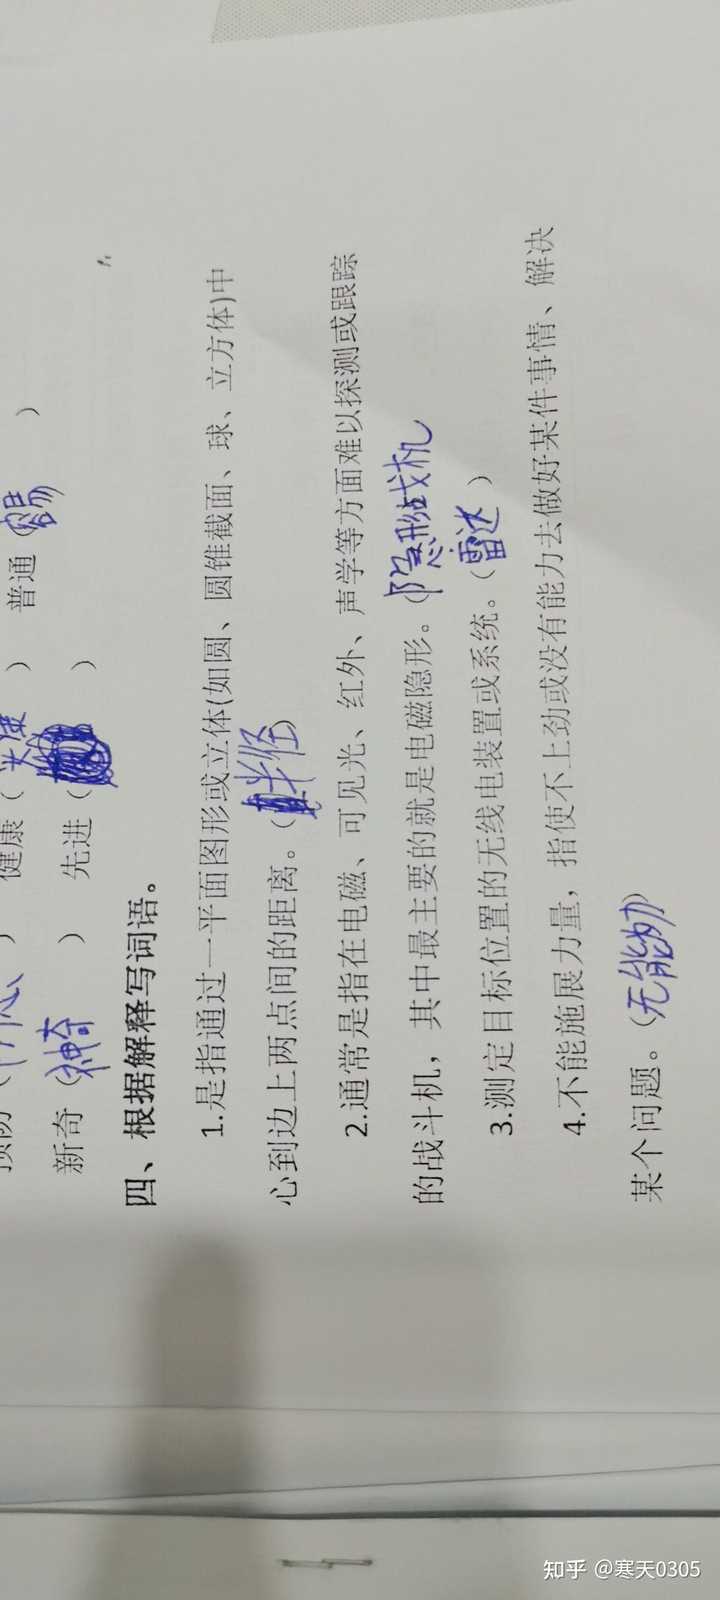 健康（ ） 普通（容易 ）
新奇（神奇 ） 先进（ ）
四、根据解释写词语。
1.是指通过一平面图形或立体(如圆、圆锥截面、球、立方体)中
心到边上两点间的距离。（半径）
2.通常是指在电磁、可见光、红外、声学等方面难以探测或跟踪
的战斗机，其中最主要的就是电磁隐形。（隐形战机
3.测定目标位置的无线电装置或系统。（雷达 ）
4.不能施展力量，指使不上劲或没有能力去做好某件事情、解决
某个问题。（无能为力）
知乎 @寒天0305